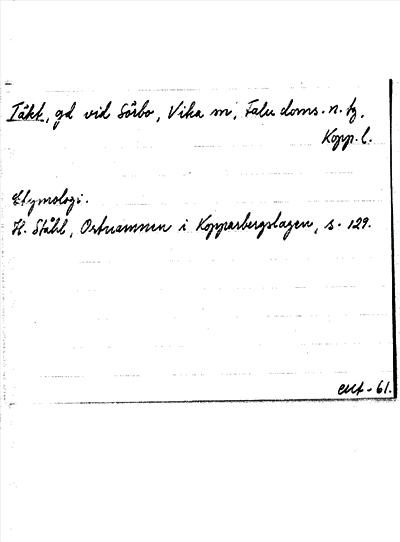 Täkt, gd vid Sörbo, Vika sn, Falu doms. n. tg.
Kopp. l.
Etymologi.
H. Ståhl, Ortnamnen i Kopparbergslagen, s. 129.
-61.